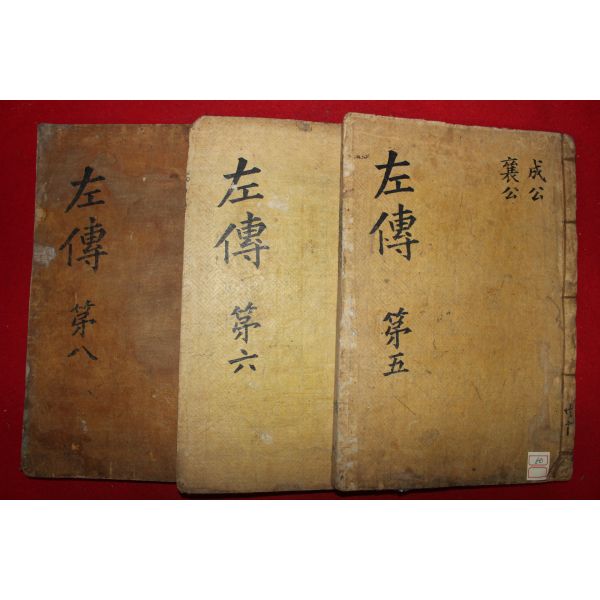 左傳 第八
左傳 第六
左傳 第五
成公
襄公